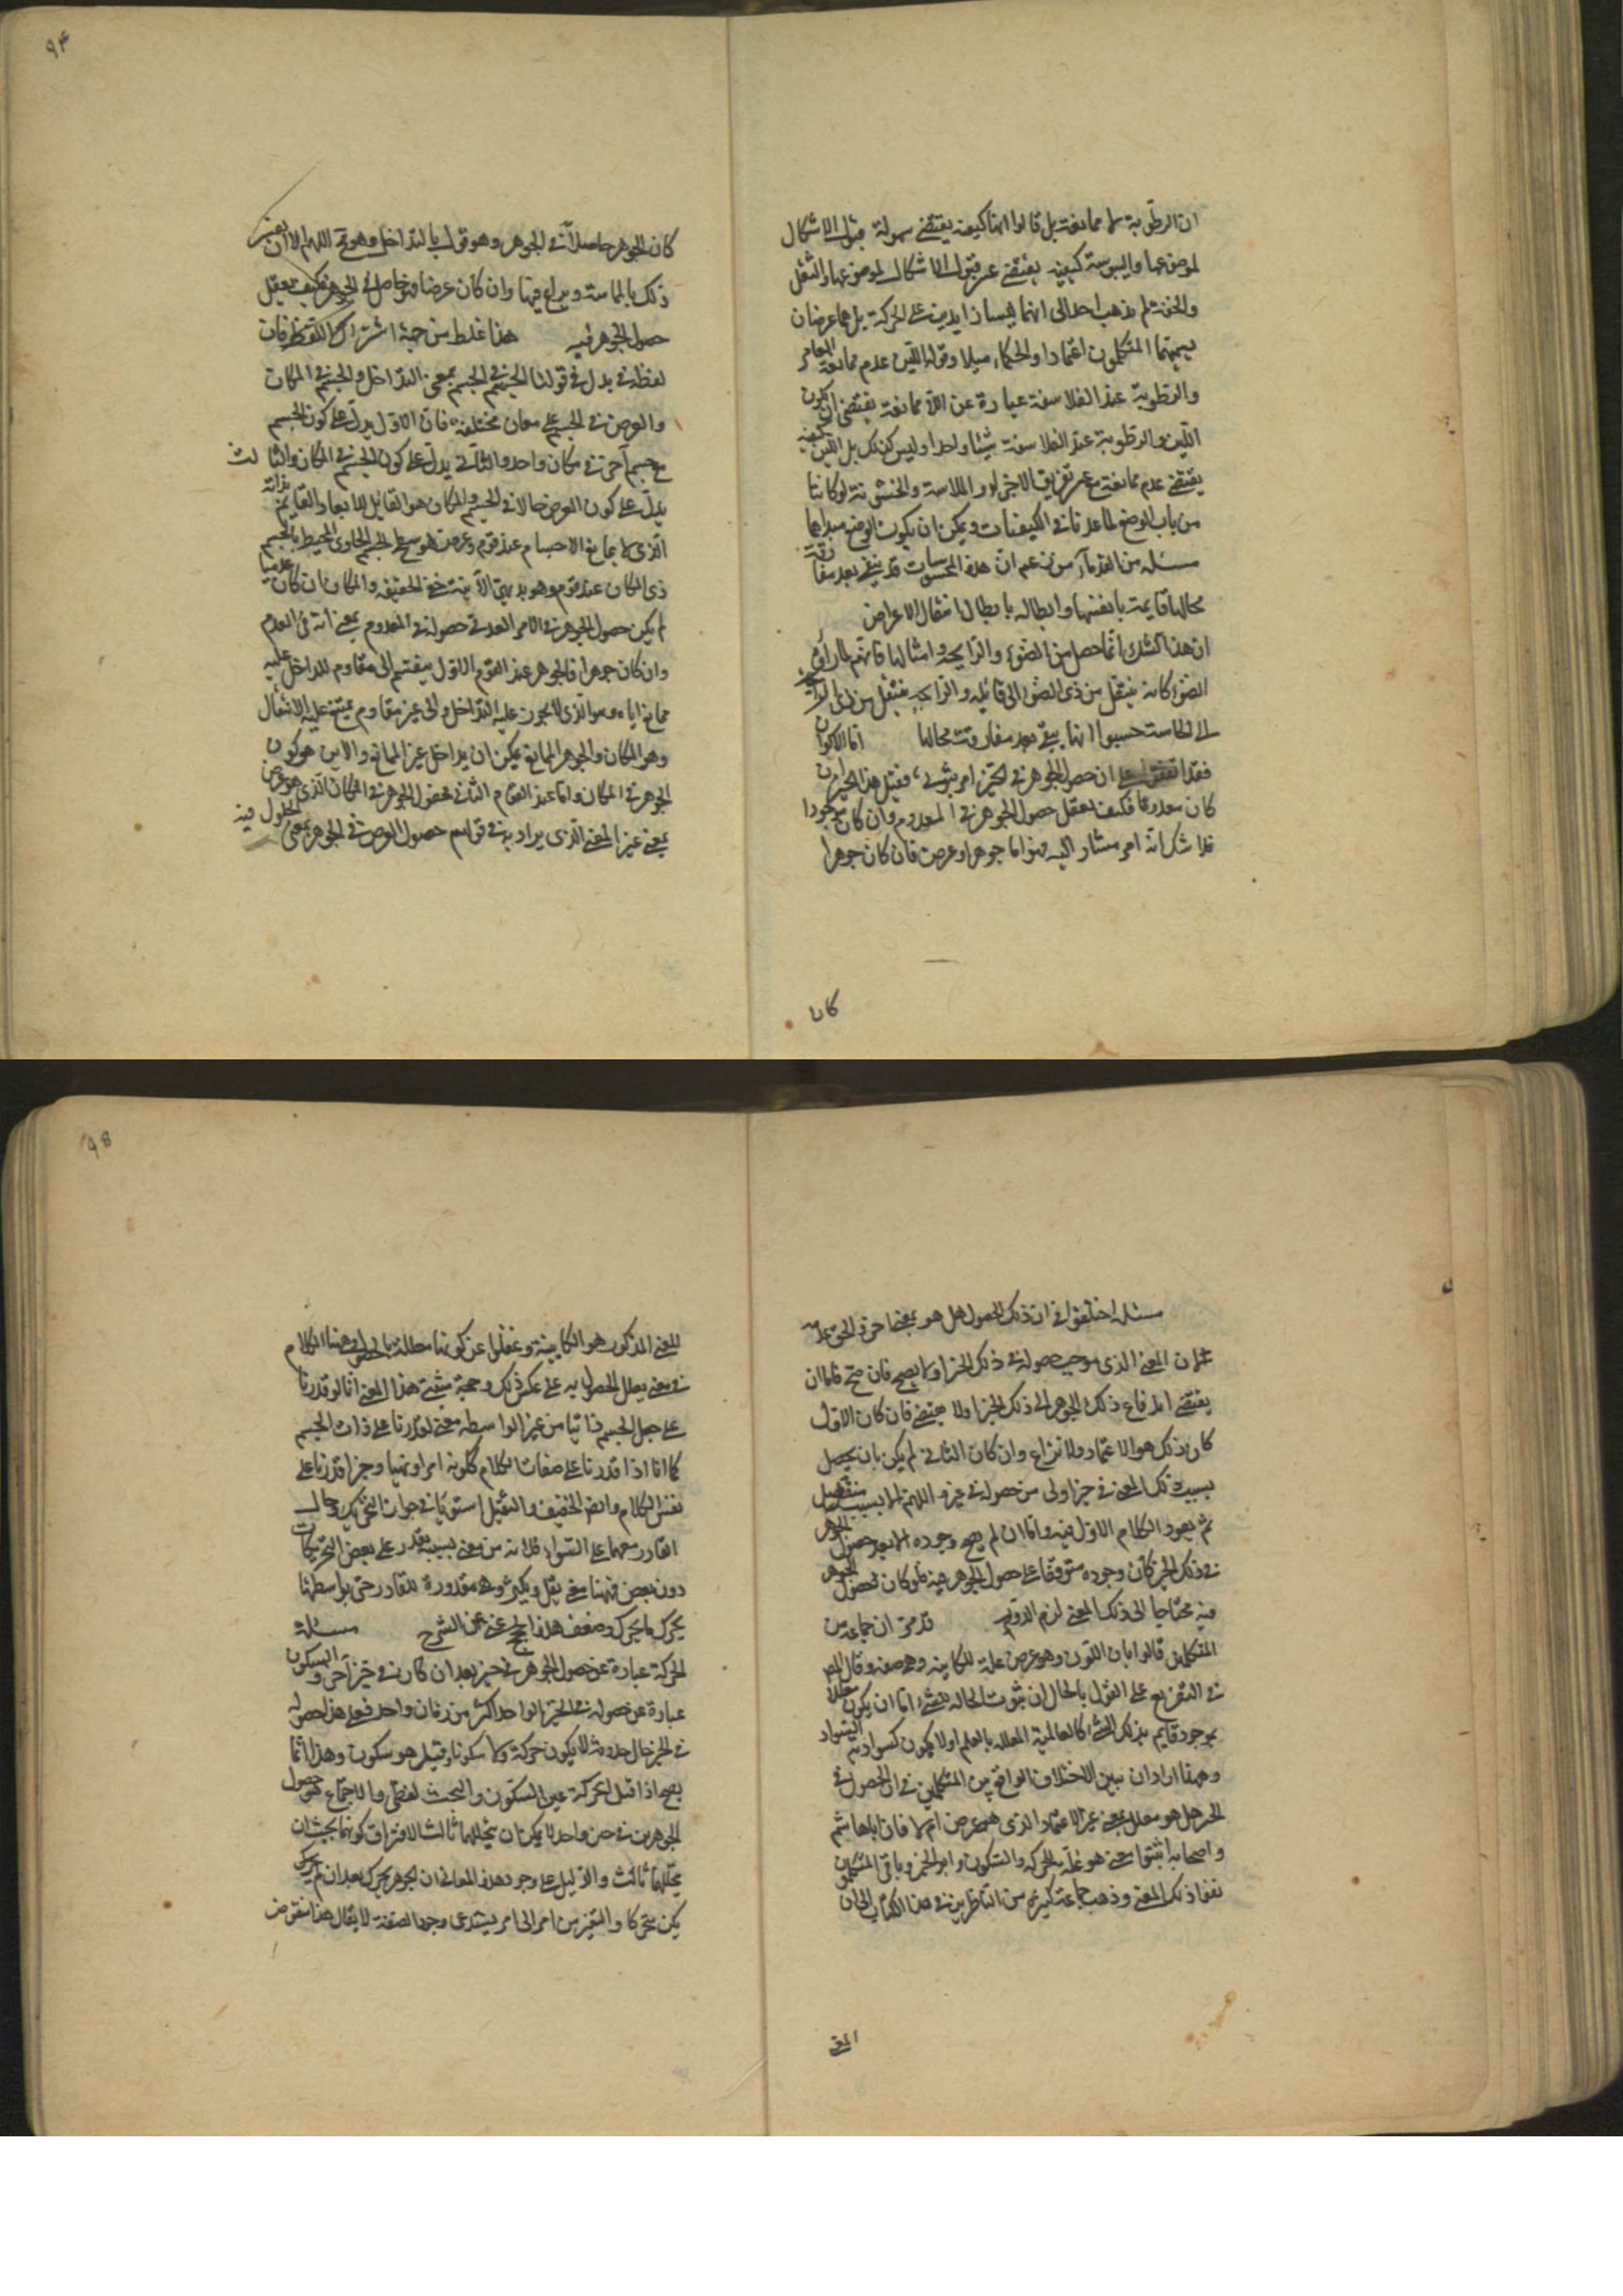 ان الرطوبة لا ممانعة بل قالوا انها كيفية يقتضي سهولة قبول الاشكال
لموضوعها واليبوسة كيفية يقتضي عسر قبول الاشكال لموضوعها والثقل
والخفة لم يذهب احد الى انهما ليسا زايدين على الحركة بل هما عرضان
يسميهما المتكلمون اعتمادا والحكماء ميلا وقوله اللين عدم ممانعة الغامر
والرطوبة عند الفلاسفة عبارة عن اللا ممانعة يقتضي ان يكون
اللين والرطوبة عند الفلاسفة شيئا واحدا وليس كذلك بل اللين كيفية
يقتضي عدم ممانعة مع عسر تفريق الاجزاء والملاسة والخشونة لو كانتا
من باب الوضع لما عدتا في الكيفيات ويمكن ان يكون الوضع مبداهما
مسئله من القدماء من زعم ان هذه المحسوسات قد يبقى بعد مفارقة
محالها قايمة بانفسها وابطاله بابطال انتقال الاعراض
ان هذا الشك انما حصل من الضوء والرايحة وامثالها فانهم لما راوا
الضوء كانه ينتقل من ذي الضوء الى قابله والرايحة ينتقل من ذي الرايحة
الى الحاسة حسبوا انها يبقى بعد مفارقة محالها اما الاكوان
فقد اتفقوا على ان حصول الجوهر في الحيز امر ثبوتي فقيل هذا الحيز ان
كان معدوما فكيف يعقل حصول الجوهر في المعدوم وان كان موجودا
فلا شك انه امر مشار اليه فهو اما جوهر او عرض فان كان جوهرا
كان
٩۴
كان الجوهر حاصلا في الجوهر وهو قول بالتداخل وهو مح اللهم الا ان يعنى
ذلك بالمماسة ويراع فيها وان كان عرضا فهو حاصل في الجوهر فكيف يعقل
حصول الجوهر فيه هذا غلط من جهة اشتراك اللفظ فان
لفظة في يدل في قولنا الجسم في الجسم بمعنى التداخل والجسم في المكان
والعرض في الجسم على معان مختلفة فان الاول يدل على كون الجسم
مع جسم آخر في مكان واحد والثاني يدل على كون الجسم في المكان والثالث
يدل على كون العرض حالا في الجسم والمكان هو القابل للابعاد القايم بذاته
الذي لا يمانع الاجسام عند قوم وعرض هو سطح الجسم الحاوى المحيط بالجسم
ذي المكان عند قوم وهو بديهي الاينية خفي الحقيقة والمكان ان كان عدميا
لم يكن حصول الجوهر في الامر العدمي حصوله في المعدوم بمعنى انه في العدم
وان كان جوهرا فالجوهر عند القوم الاول ينقسم الى مقاوم للداخل عليه
ممانع اياه وهو الذي لا يجوز عليه التداخل والى غير مقاوم يمتنع عليه الانتقال
وهو المكان والجوهر الممانع يمكن ان يداخل غير الممانع والاين هو كون
الجوهر في المكان واما عند القوم الثاني فحصول الجوهر في المكان الذي هو عرض
بمعنى غير المعنى الذي يراد به في قولهم حصول العرض في الجوهر بمعنى الحلول فيه
مسئله اختلفوا في ان ذلك الحصول هل هو معلل بمعنى آخر والحق عدمه
لان المعنى الذي يوجب حصوله في ذلك الحيز اولا يصح فان صح فاما ان
يقتضي اندفاع ذلك الجوهر الى ذلك الحيز اولا يقتضي فان كان الاول
كان ذلك هو الاعتماد ولا نزاع وان كان الثاني لم يكن بان يحصل
بسبب ذلك المعنى في حيز اولى من حصوله في غيره اللهم الا بسبب منفصل
ثم يعود الكلام الاول فيه واما ان لم يصح وجوده الا بعد حصول الجوهر
في ذلك الحيز كان وجوده متوقفا على حصول الجوهر فيه فلو كان حصول الجوهر
فيه محتاجا الى ذلك المعنى لزم الدور قد مر ان جماعة من
المتكلمين قالوا بان الكون وهو عرض علة للكاينية وهي صفة وقال المص
في التفريع على القول بالحال ان ثبوت الحالة للشيء اما ان يكون معللا
بموجود قايم بذلك الشيء كالعالمية المعللة بالعلم اولا يكون كسوادية السواد
وههنا اراد ان يبين الاختلاف الواقع بين المتكلمين في ان الحصول في
الحيز هل هو معلل بمعنى غير الاعتماد الذي هو عرض ام لا فان ابا هاشم
واصحابه اثبتوا معنى هو علة للحركة والسكون وابو الحسين وباقي المتكلمين
نفوا ذلك المعنى وذهب جماعة كثيرة من الناظرين في هذا الكتاب الى ان
المعنى
٩۵
المعنى المذكور هو الكاينية وغفلوا عن كونها معللة بالحصول وههنا الكلام
في معنى يعلل الحصول به على عكس ذلك وحجة مثبتي هذا المعنى انا لو قدرنا
على جعل الجسم كاينا من غير الواسطة معنى لقدرنا على ذات الجسم
كما انا اذا قدرنا على صفات الكلام ككونه امرا ونهيا وخبرا قدرنا على
نفس الكلام وايض الخفيف والثقيل استويا في جواز التحريك وحال
القادر معهما على السواء فلا بد من معنى بسببه يقدر على بعض التحريكات
دون بعض فههنا معنى يقل ويكثر وهو مقدورة للقادر حتى بواسطتها
يحرك ما يحرك وضعف هذا الحجج غني عن الشرح مسئله
الحركة عبارة عن حصول الجوهر في حيز بعد ان كان في حيز آخر والسكون
عبارة عن حصوله في الحيز الواحد اكثر من زمان واحد فعلى هذا حصوله
في الحيز حال حدوثه لا يكون حركة ولا سكونا وقيل هو سكون وهذا انما
يصح اذا قيل الحركة عين السكون والبحث لفظي والاجتماع هو حصول
الجوهرين في حيزين واحد لا يمكن ان يتخللهما ثالث الافتراق كونهما بحيث ان
يتخللهما ثالث والدليل على وجود هذه المعاني ان الجوهر يتحرك بعد ان لم
يكن متحركا والتغير من امر الى امر يستدعي وجود الصفة لا يقال هذا منقوض